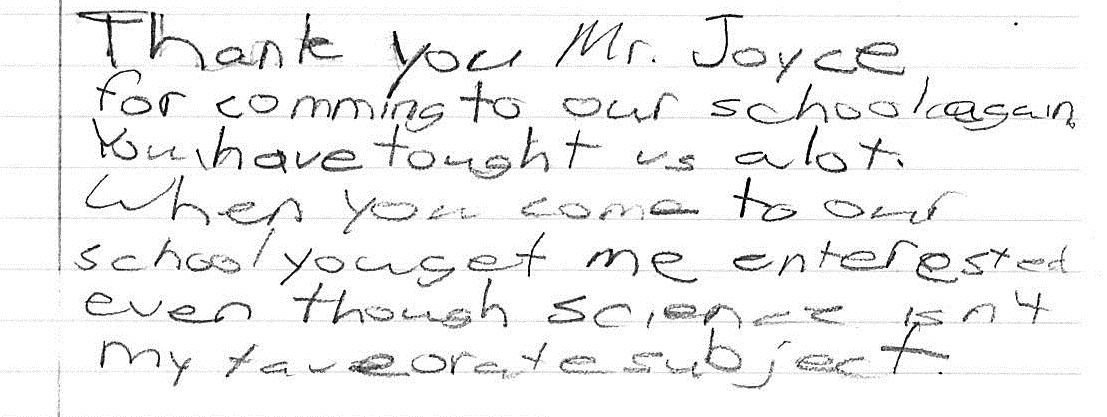 Thank you Mr. Joyce
for comming to our school again.
You have tought us a lot.
When you come to our
school you get me enterested
even though science isnt
my faveorate subject.